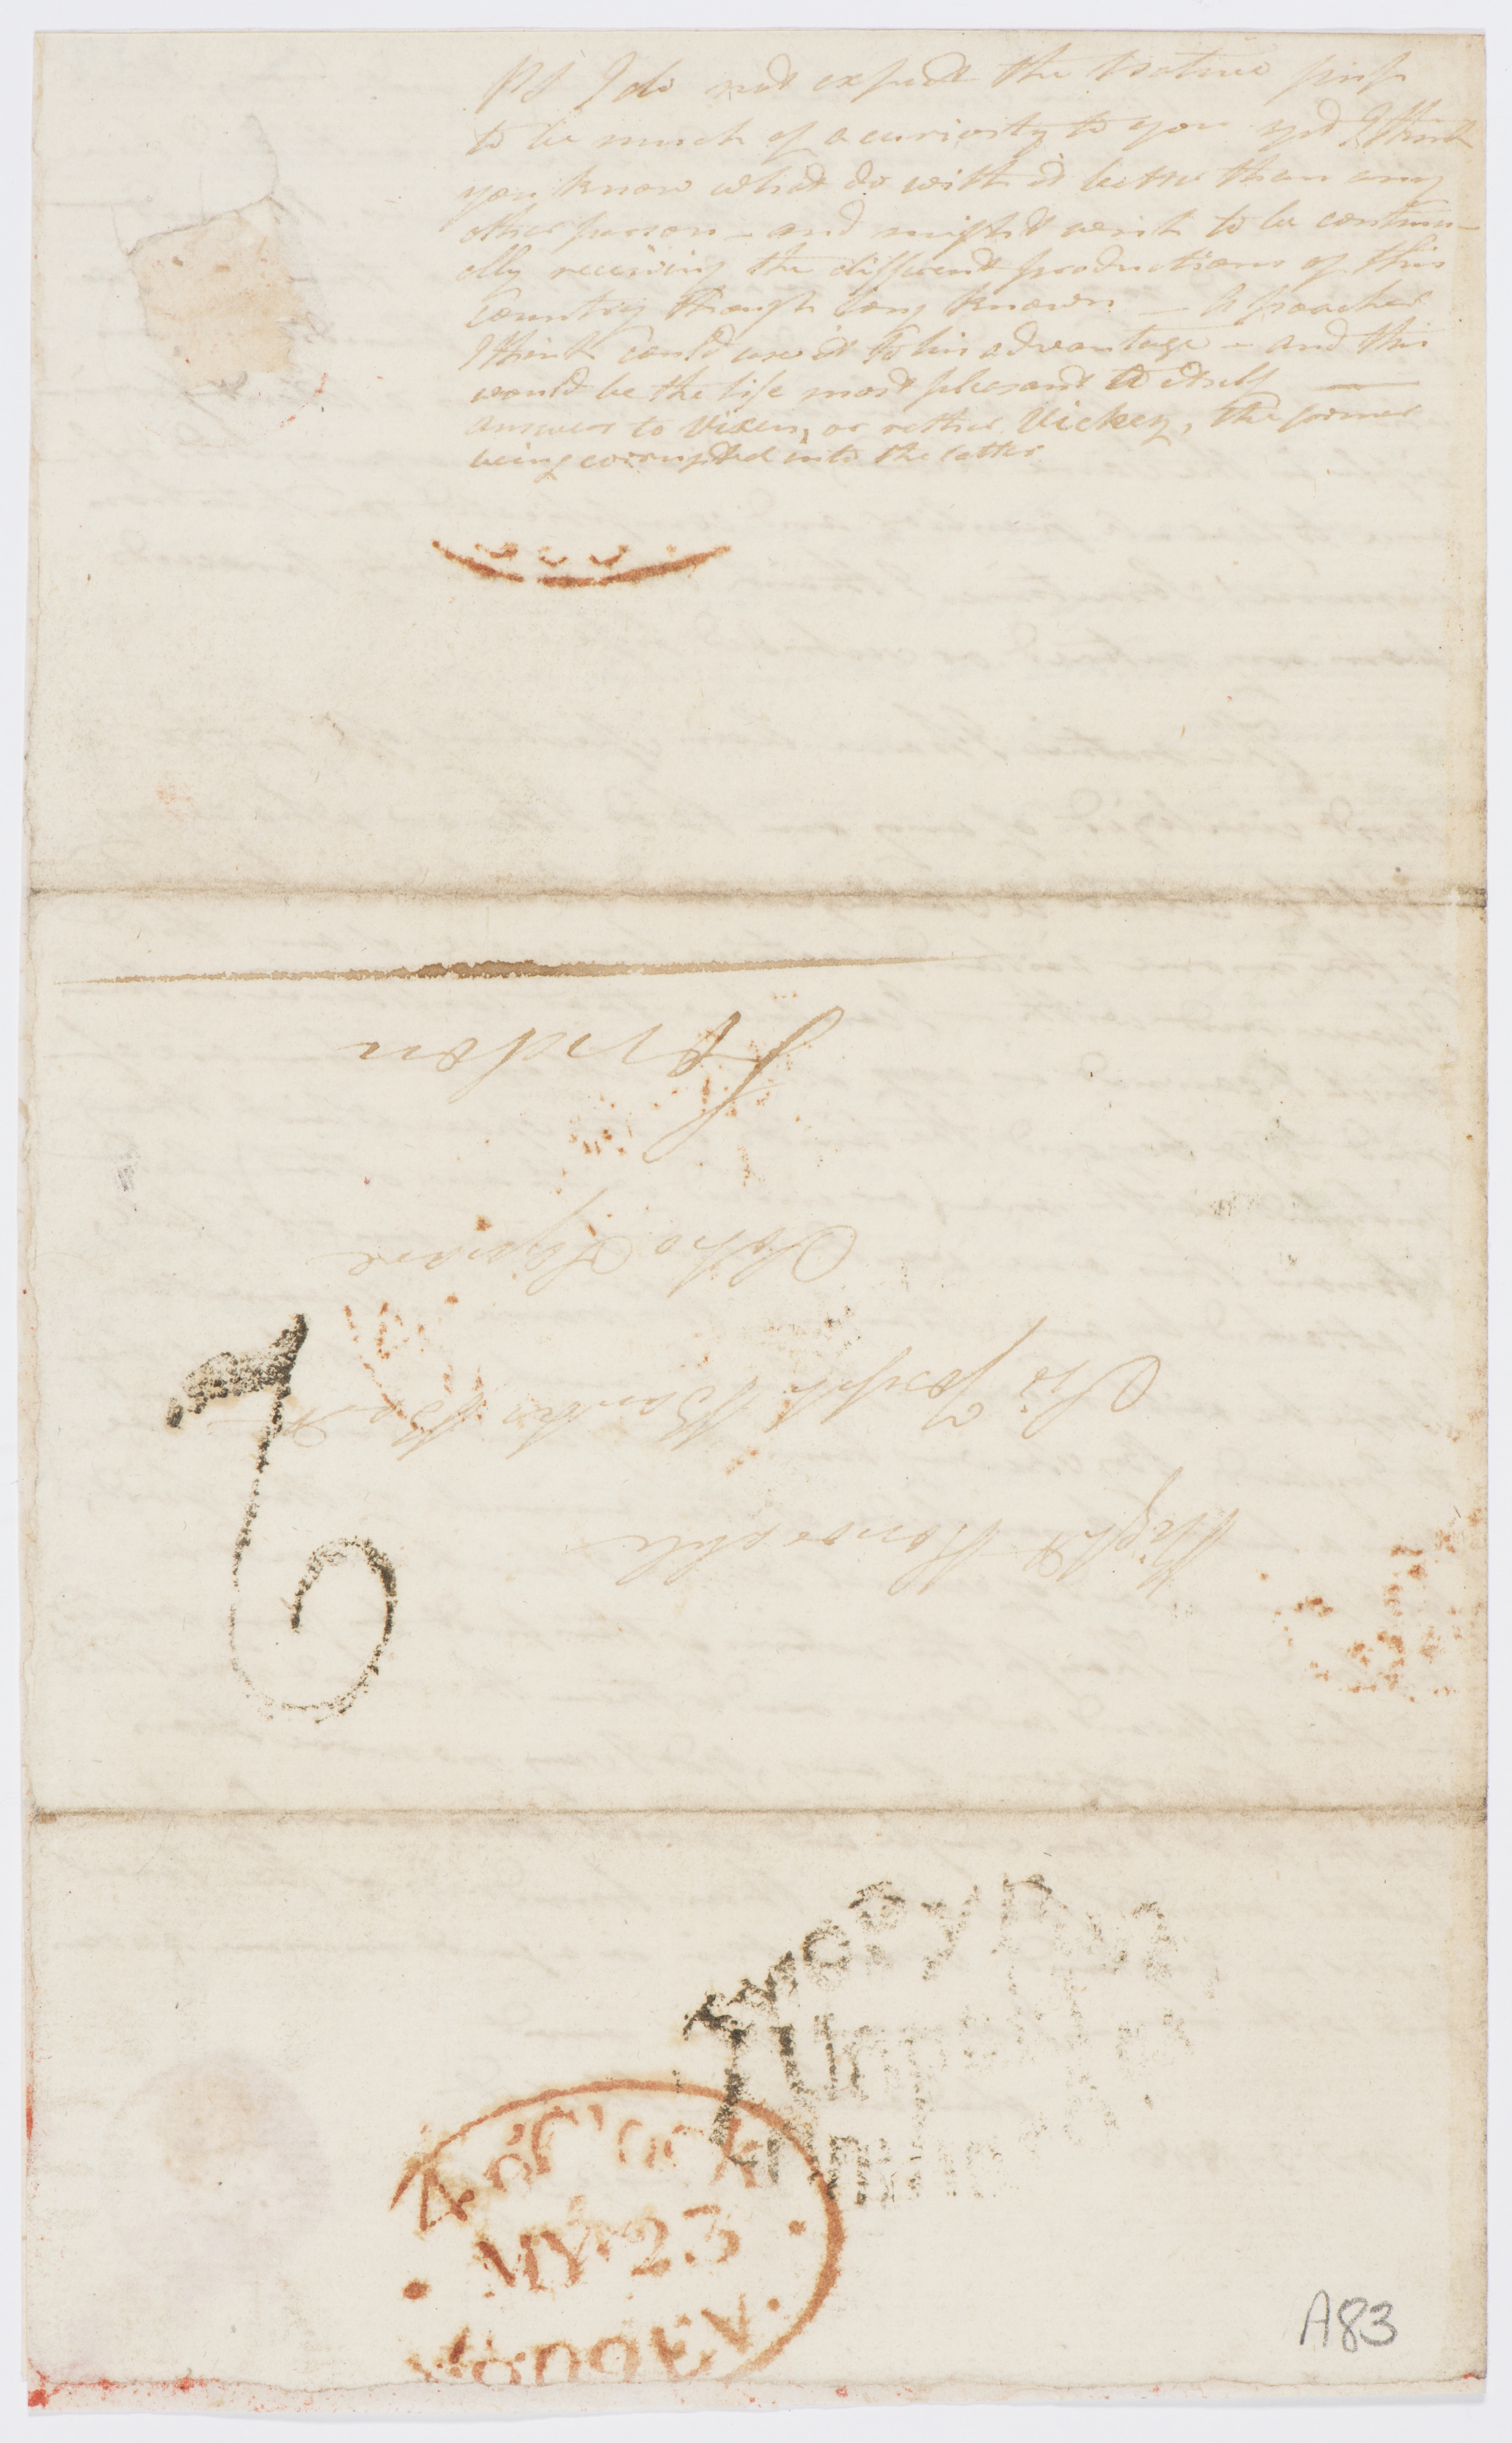 PS I do not expect the Native
to be much of a curiosity to you yet I think
you know what do with it better than any
other person – and might wish to be continu-
ally receiving the different productions of this
Country though long known – A poacher
I think could use it to his advantage – and this
would be the life most pleasant to itself —
answers to Vixen, or rather Vickey, the former
being corrupted into the latter
London
Soho Square
Sir Joseph Banks Bart
Right Honorable
2
TwoPyPost
Unpaid
4 o'Clock
MY 23
EV
A83